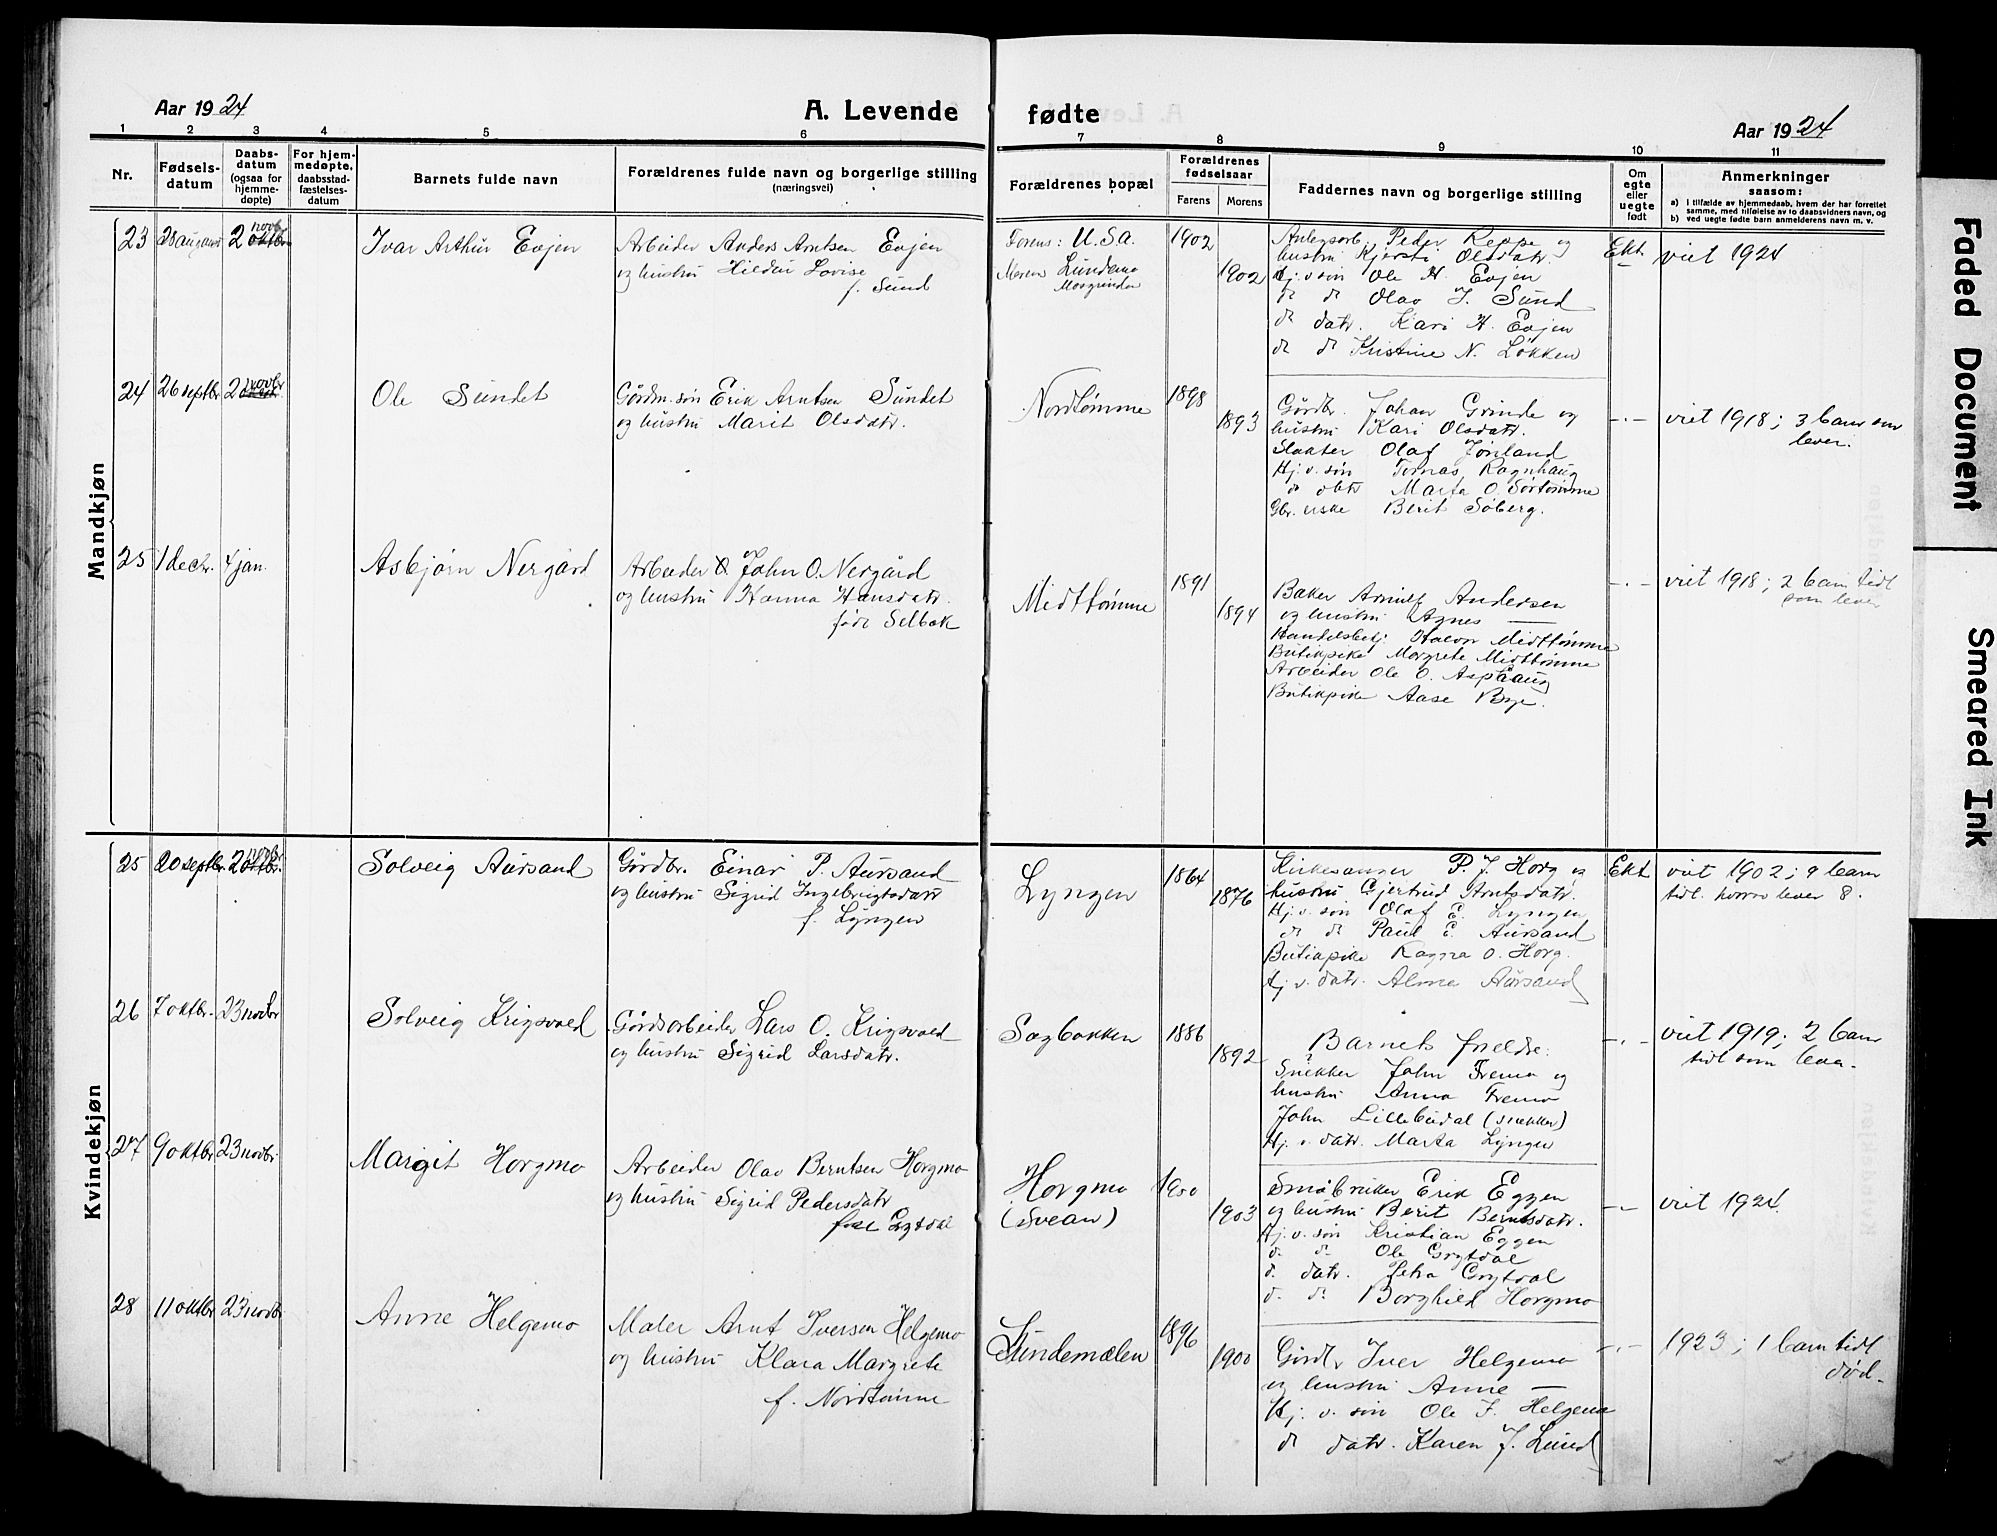 Aar 1924
A. Levende fødte
Aar 1924
1 2 3 4 5 6 7 8 9 10 11
Nr.
Fødsels-
datum
Daabs-
datum
(ogsaa for
hjemme-
døpte)
For hjem-
medøpte,
daabsstad-
fæstelses-
datum
Barnets fulde navn
Forældrenes fulde navn og borgerlige stilling
(næringsvei)
Forældrenes bopæl
Forældrenes
fødselsaar
Farens Morens
Faddernes navn og borgerlige stilling
Om
egte
eller
uegte
født
Anmerkninger
saasom:
a) I tilfælde av hjemmedaab, hvem der har forrettet
samme, med tilføielse av to daabsvidners navn, og
b) ved uegte fødte barn anmelderens navn m. v.
Mandkjøn
23 28 august 2 novbr oktbr
Ivar Arthur Evjen
Arbeider Anders Arntsen Evjen
og hustru Hildur Lovise
f. Sund
Farens: U.S.a.
Moren Lundamo
1902
1902
Anlegsarb. Peder Reppe og
hustru Kjersti Olsdatr.
Hj. v. søn Ole H. Evjen
do do Olav J. Sund
do datr. Kari H. Evjen
do do Kristine N. Løkken
Ekt
viet 1924
24 26 septbr 2 novbr
Ole Sundet
Gårdm. søn Erik Arntsen Sundet
og hustru Marit Olsdatr.
Nordtømme
1898
1893
Gårdbr. Johan Grinde og
hustru Kari Olsdatr.
Slakter Olaf Jønland
Hj. v. søn Tomas Ragnhaug
do datr Marta O. Sørtømme
Gbr. enke Berit Søberg.
-"-
viet 1918; 3 barn som
lever.
25 1 decbr. 4 jan.
Asbjørn Nergård
Arbeider John O. Nergård
og hustru Hanna Hansdatr.
født Selbek
Midttømme
1891
1894
Baker Arnulf Andersen
og hustru Agnes —
Handelsbetj. Halvor Midttømme
Butikpike Margrete Midttømme
Arbeider Ole O. Aspåaug
Butikpike Aase Bye.
-"-
viet 1918; 2 barn tidl
som lever
Kvindekjøn
25 20 septbr. 2 novbr oktbr.
Solveig Aursand
Gårdbr. Einar P. Aursand
og hustru Sigrid Ingebrigtsdatr
f. Lyngen
Lyngen
1864
1876
Kirkesanger P. J. Horg og
hustru Gjertrud Arntsdatr.
Hj. v. søn Olaf E. Lyngen
do do Paul E. Aursand
Butikpike Ragna O. Horg.
Hj. v. datr. Alma Aursand
Ekt
viet 1902; 9 barn
tidl. hvorav lever 8.
26 7 oktbr. 23 novbr
Solveig Krigsvold
Gårdsarbeider Lars O. Krigsvold
og hustru Sigrid Larsdatr.
Sagbakken
1886
1892
Barnets foreldre.
Snekker John Fremo og
hustru Anna Fremo
John Lillebudal (snekker)
Hj. v. datr. Marta Lyngen
-"-
viet 1919; 2 barn
tidl som lever.
27 9 oktbr 23 novbr.
Margit Horgmo
Arbeider Olav Berntsen Horgmo
og hustru Sigrid Pedersdatr
født Grytdal
Horgmo
(Svean)
1900
1903
Småbruker Erik Eggen
og hustru Berit Berntsdatr.
Hj. v. søn Kristian Eggen
do do Ole Grytdal
do datr. Petra Grytdal
do do Borghild Horgmo
-"-
viet 1924.
28 11 oktbr 23 novbr
Anne Helgemo
Maler Arnt Iversen Helgemo
og hustru Klara Margrete
f. Nordtømme
Lundemælen
1896
1900
Gårdbr Iver Helgemo
og hustru Anne —
Hj. v. søn Ole I. Helgemo
do datr. Karen J. Lund
-"-
1923; 1 barn tidl
død.
Faded Document
Smeared Ink